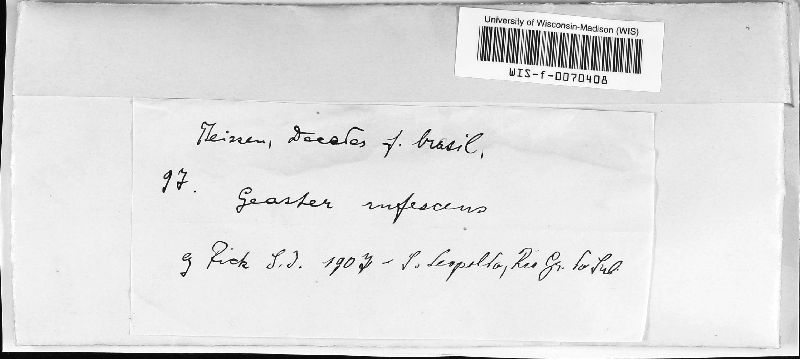 University of Wisconsin-Madison (WIS)
WIS-f-0070408
Theissen, Decades f. brasil.
97.
Geaster rufescens
lg Rick S.J. 1907 - S. Leopoldo, Rio Gr. do Sul.